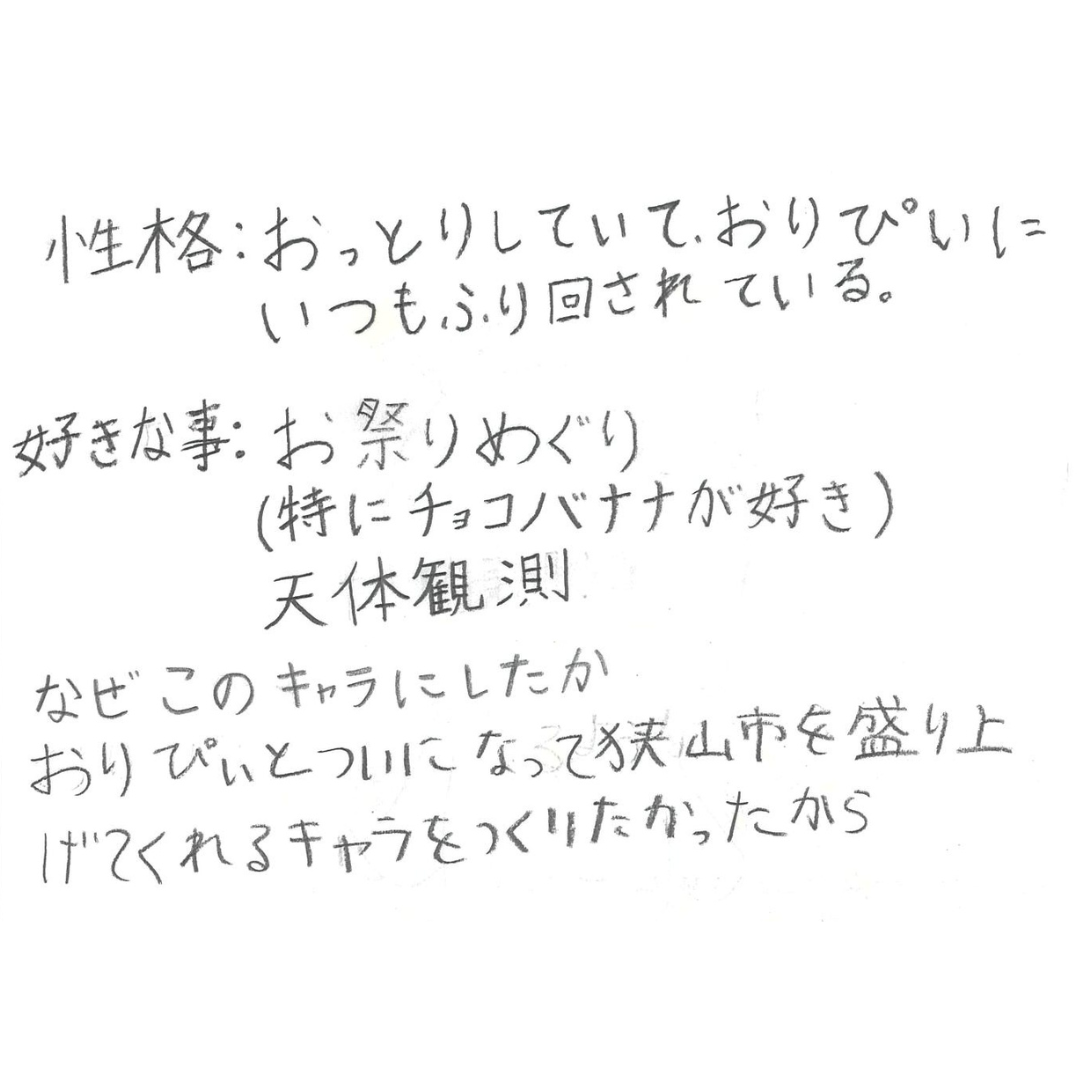 性格:おっとりしていて、おりぴいに
いつもふり回されている。
好きな事:お祭りめぐり
(特にチョコバナナが好き)
天体観測
なぜこのキャラにしたか
おりぴぃとついになって狭山市を盛り上
げてくれるキャラをつくりたかったから